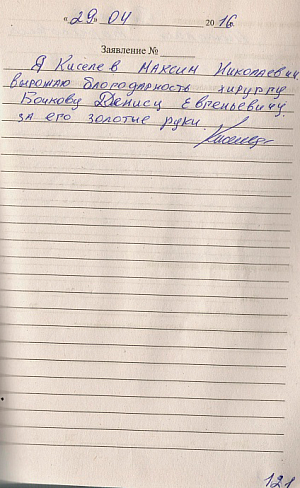 «29» 04 2016.
Заявление №
Я Киселев Максим Николаевич
выражаю благодарность хирургу
Бочкову Денису Евгеньевичу.
за его золотые руки.
Киселев
121